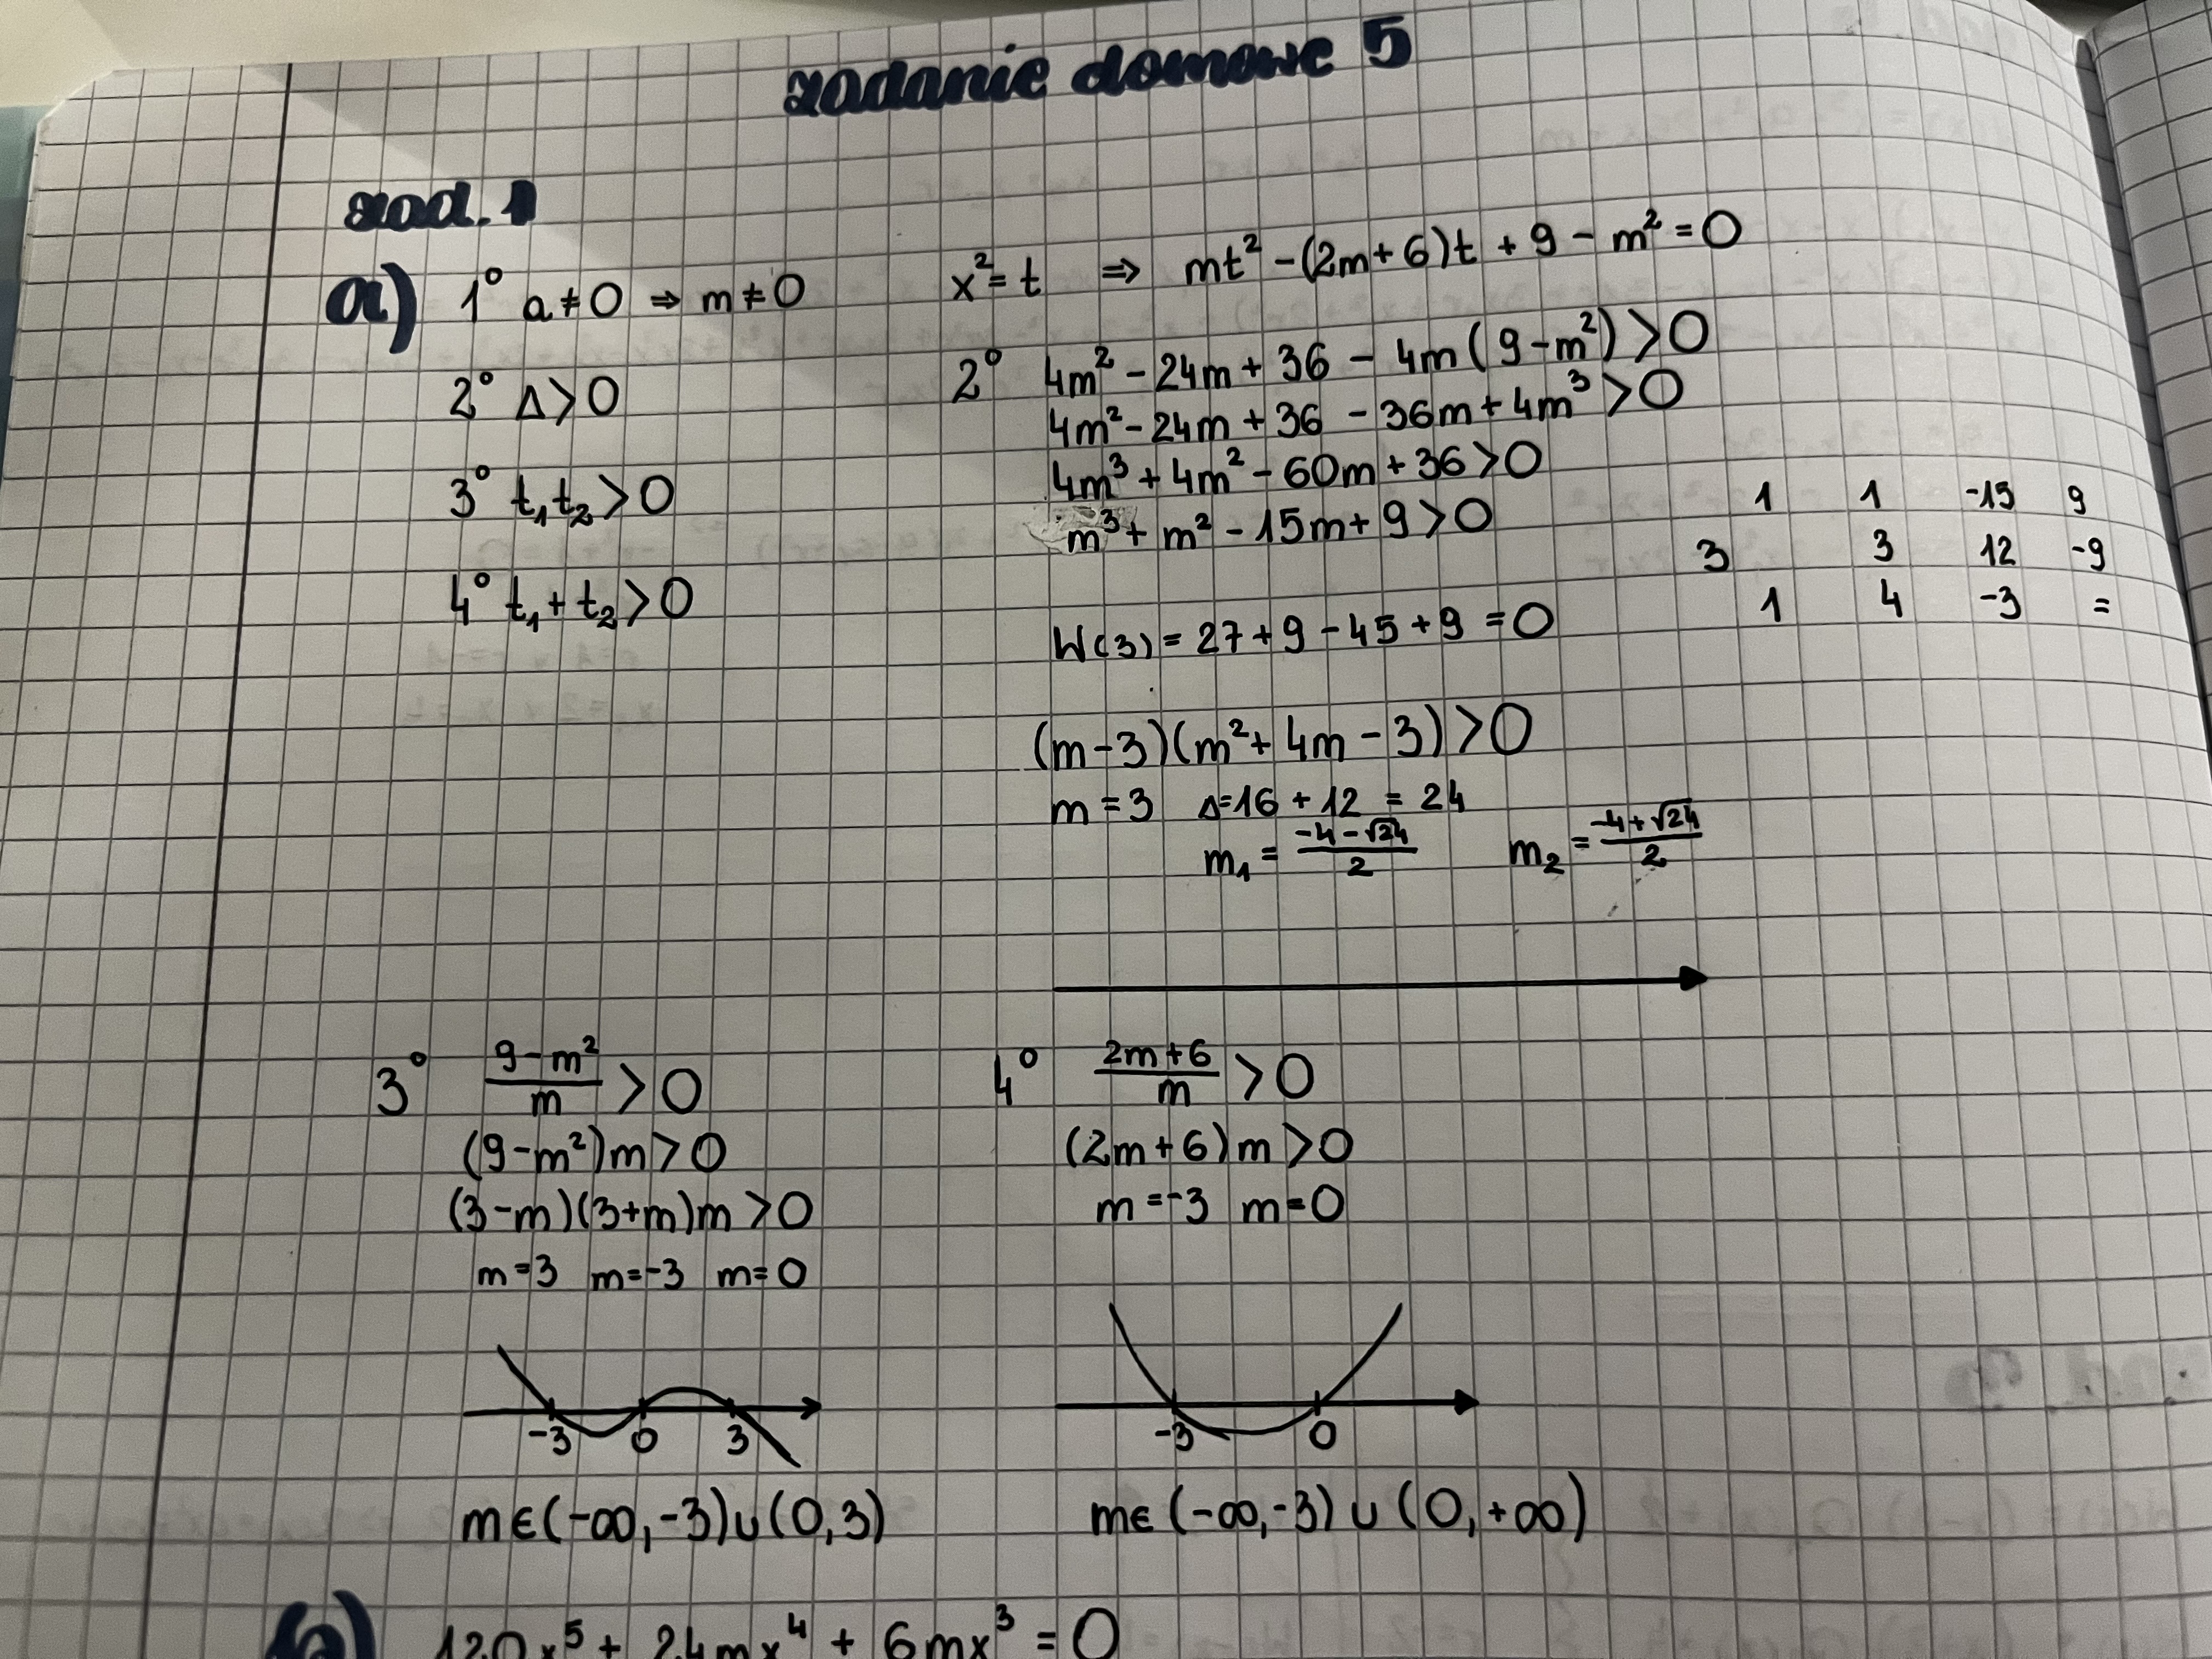 zadanie domowe 5
zad. 1
a) 1° a ≠ 0 ⇒ m ≠ 0
2° Δ > 0
3° t₁t₂ > 0
4° t₁ + t₂ > 0
x² = t ⇒ mt² - (2m + 6)t + 9 - m² = 0
2° 4m² - 24m + 36 - 4m(9 - m²) > 0
4m² - 24m + 36 - 36m + 4m³ > 0
4m³ + 4m² - 60m + 36 > 0
m³ + m² - 15m + 9 > 0
1 1 -15 9
3 3 12 -9
1 4 -3 =
W(3) = 27 + 9 - 45 + 9 = 0
(m - 3)(m² + 4m - 3) > 0
m = 3 Δ = 16 + 12 = 24
m₁ = (-4 - √24)/2 m₂ = (-4 + √24)/2
3° (9 - m²)/m > 0
(9 - m²)m > 0
(3 - m)(3 + m)m > 0
m = 3 m = -3 m = 0
-3 0 3
m ∈ (-∞, -3) ∪ (0, 3)
4° (2m + 6)/m > 0
(2m + 6)m > 0
m = -3 m = 0
-3 0
m ∈ (-∞, -3) ∪ (0, +∞)
120x⁵ + 24mx⁴ + 6mx³ = 0